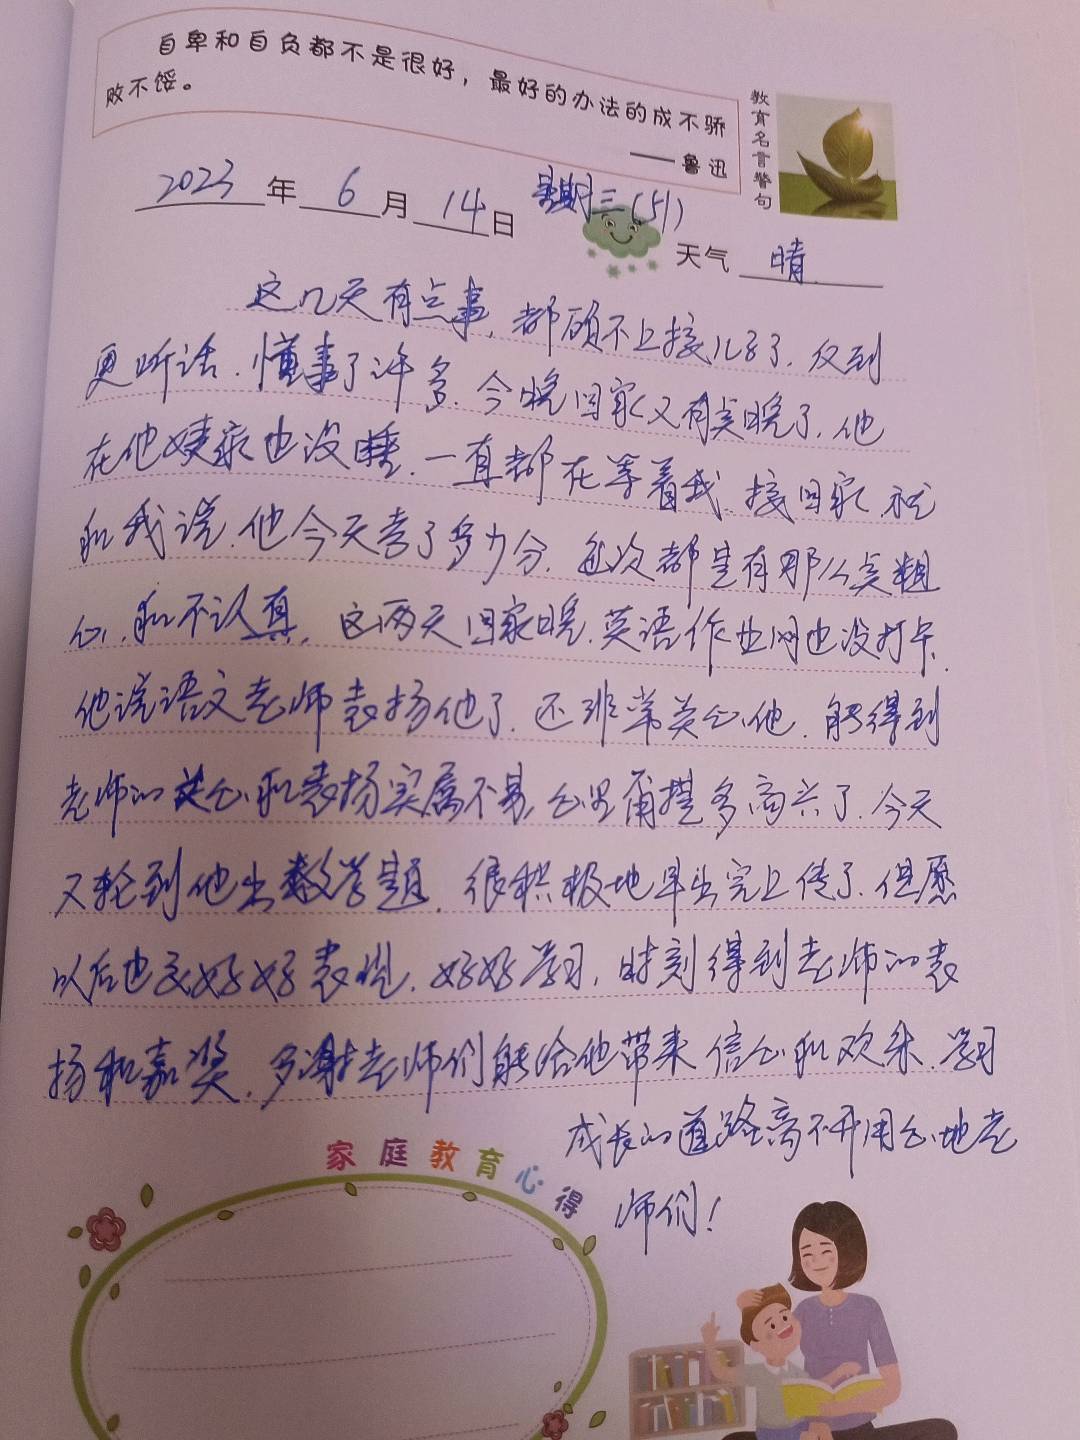 自卑和自负都不是很好，最好的办法的成不骄
败不馁。
——鲁迅
教育名言警句
2023年6月14日 星期三(51) 天气 晴
这几天有点事，都顾不上接儿子了，反到
更听话，懂事了许多，今晚回家又有点晚了，他
在他姨家也没睡，一直都在等着我，接回家，就
和我说，他今天考了多少分，每次都是有那么点粗
心，和不认真，这两天回家晚，英语作业网也没打卡，
他说语文老师表扬他了，还非常关心他，能得到
老师的关心和表扬实属不易，心里甭提多高兴了，今天
又轮到他出数学题，很积极地早出完上传了，但愿
以后也 好好表现，好好学习，时刻得到老师的表
扬和嘉奖，多谢老师们能给他带来信心和欢乐，学习
成长的道路离不开用心地老
师们！
家庭教育心得